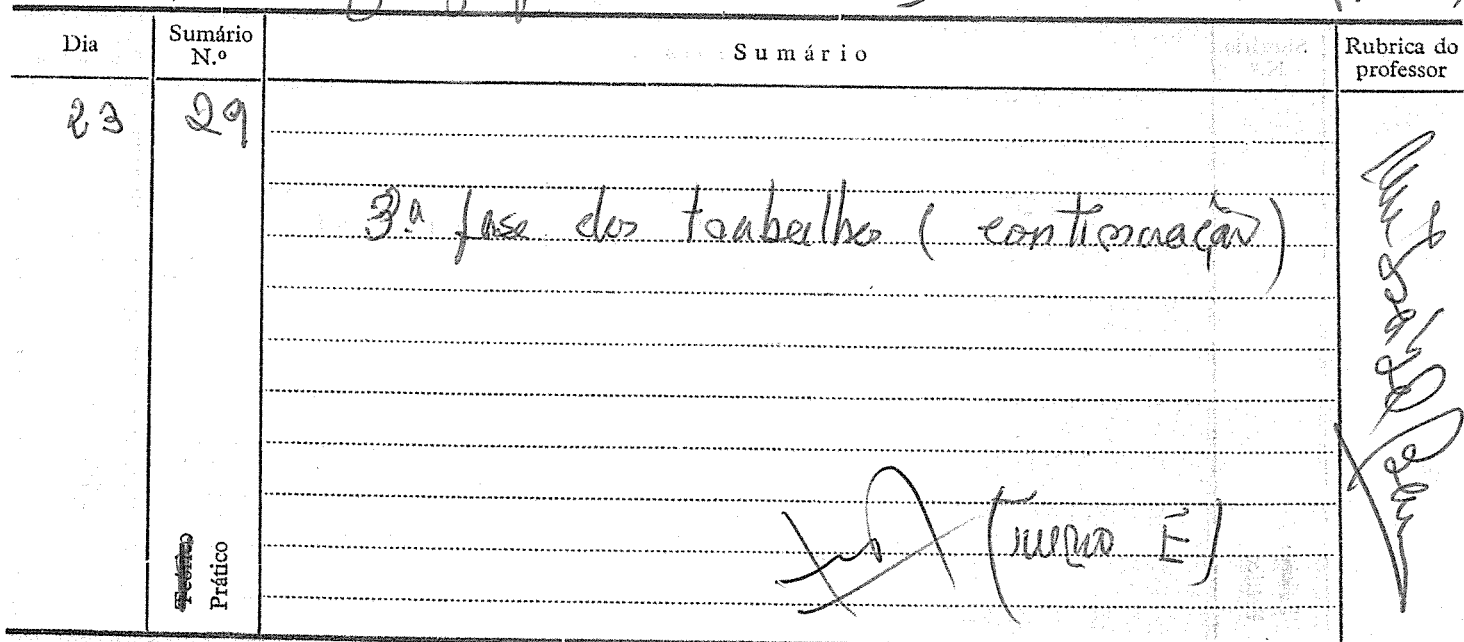 Dia
Sumário N.º
Sumário
Rubrica do professor
23
29
3ª fase dos trabalhos (continuação)
(Turma E)
Teórico
Prático